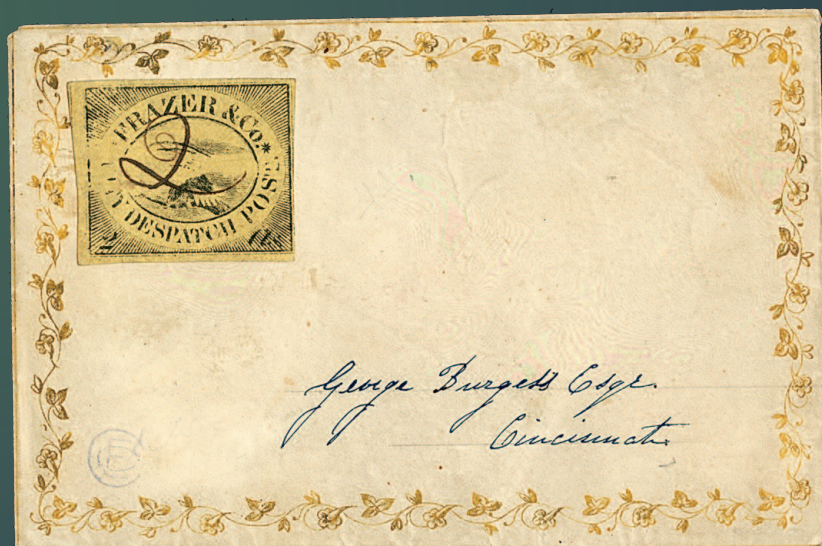 FRAZER & Co.
CITY DESPATCH POST
George Burgess Esqr.
Cincinnati